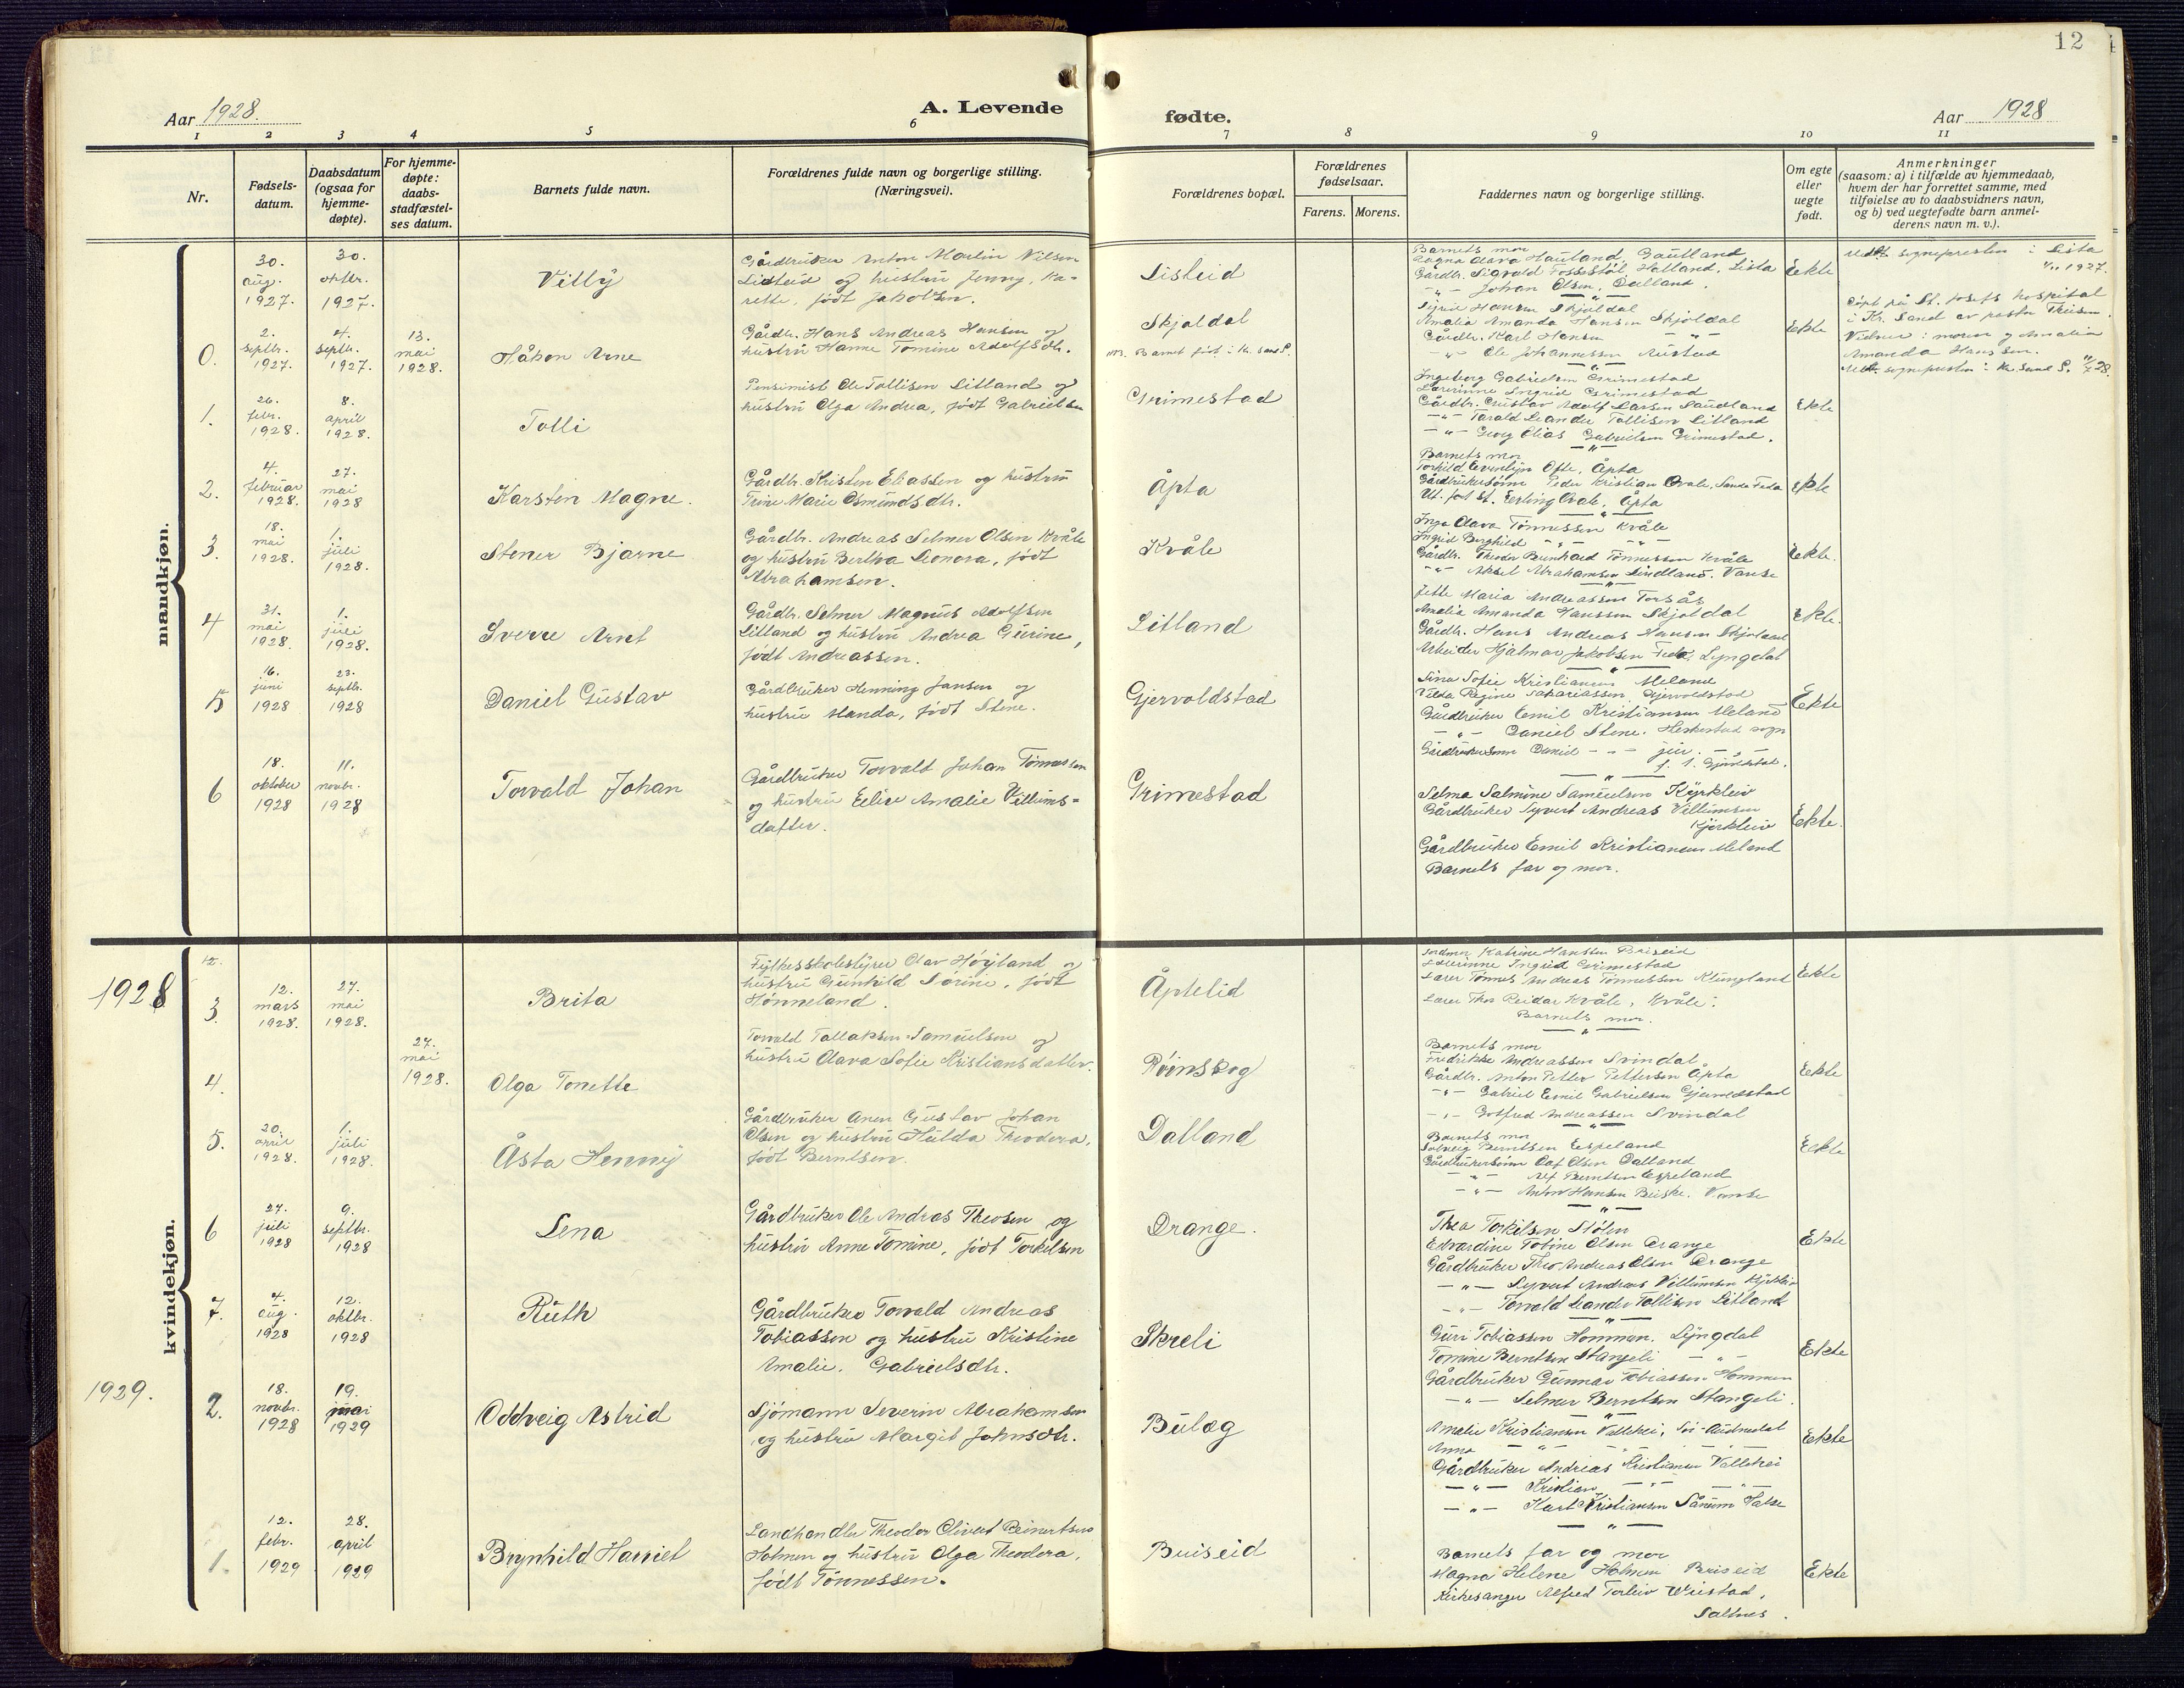 12
Aar 1928.
A. Levende
fødte.
Aar 1928
1 2 3 4 5 6 7 8 9 10 11
Nr.
Fødsels-
datum.
Daabsdatum
(ogsaa for
hjemme-
døpte).
For hjemme-
døpte:
daabs-
stadfæstel-
ses datum.
Barnets fulde navn.
Forældrenes fulde navn og borgerlige stilling.
(Næringsvei).
Forældrenes bopæl.
Forældrenes
fødselsaar.
Farens. Morens.
Faddernes navn og borgerlige stilling.
Om egte
eller
uegte
født.
Anmerkninger
(saasom: a) i tilfælde av hjemmedaab,
hvem der har forrettet samme, med
tilføielse av to daabsvidners navn,
og b) ved uegtefødte barn anmel-
derens navn m. v.).
mandkjøn.
30.
aug.
1927.
30.
oktbr.
1927.
Villy
Gårdbruker Anton Martin Nilsen
Listeid og hustru Jenny, Ka-
rette, født Jakobsen.
Listeid
Barnets mor
Gårdbr. Sigvald Fossestøl Hatland, Lista
-"- Johan Olsen, Dalland.
Ekte
sognepresten i Lista
1927.
0.
2.
septbr.
1927.
4.
septbr.
1927.
13.
mai
1928.
Håkon Arne
Gårdbr. Hans Andreas Hansen og
hustru Hanne Tomine Adolfsdtr.
Skjoldal
Barnet født i Kr. sand S.
Sigrid Hansen Skjoldal
Amalia Amanda Hansen Skjoldal
Gårdbr. Karl Hansen
-"- Ole Johannessen Austad
Ekte
Døpt på St. Josefs hospital
i Kr. Sand av pastor
Vidner: moren og Amalia
Amanda Hanssen.
sognepresten i Kr. Sand S.
1.
26.
febr.
1928.
8.
april
1928.
Tolli
Pensimist Ole Tollisen Litland og
hustru Olga Andrea, født Gabrielsen
Grimestad
Ingeborg Gabrielsen Grimestad
Lærerinne Ingrid Grimestad
Gårdbr. Gustav Adolf Larsen Saudland
-"- Torald Leander Tollisen Litland
-"- Georg Elias Gabrielsen Grimestad.
Ekte
2.
4.
februar
1928.
27.
mai
1928
Karsten Magne.
Gårdbr. Kristen Eliassen og hustru
Trine Marie Osmundsdtr.
Åpta
Barnets mor
Torhild Evenlyn Ofte, Åpta
Gårdbrukersønn Peder Kristian Kvale, Søndre Feda
Erling Kvale, Åpta
Ekte
3.
18.
mai
1928.
1.
juli
1928.
Stener Bjarne
Gårdbr. Andreas Selmer Olsen Kvåle
og hustru Bertha Leonora, født
Abrahamsen.
Kvåle
Inga Olava Tønnessen Kvåle
Ingrid Berghild -"- -"-
Gårdbr. Theodor Bernhard Tønnessen Kvåle
-"- Aksel Abrahamsen Lindland. Vanse
Ekte.
4
31.
mai
1928.
1.
juli
1928.
Sverre Arnt
Gårdbr. Selmer Magnus Adolfsen
Litland og hustru Andrea Gurine,
født Andreassen.
Litland
Jette Maria Andreassen Torsås
Amalia Amanda Hanssen Skjoldal
Gårdbr. Hans Andreas Hansen Skjoldal
Arbeider Hjalmar Jakobsen Feda, Lyngdal
Ekte.
5
16.
juni
1928
23.
septbr.
1928
Daniel Gustav
Gårdbruker Henning Jansen og
hustru Manda, født Stene.
Gjervoldstad
Sina Sofie Kristiansen Meland
Vilda Regine Sakariassen, Gjervoldstad
Gårdbruker Emil Kristiansen Meland
-"- Daniel Stene. Heskestad sogn
Gårdbrukersønn Daniel -"- jun. -"-
Ekte
6
18.
oktober
1928
11.
novbr.
1928
Torvald Johan
Gårdbruker Torvald Johan Tønnessen
og hustru Eline Amalie Villums=
datter.
Grimestad
Selma Salmine Samuelsen Kjørkleiv
Gårdbruker Syvert Andreas Villumsen
Kjørkleiv
Gårdbruker Emil Kristiansen Meland
Barnets far og mor.
Ekte.
kvindekjøn.
1928
3.
12.
mars
1928.
27.
mai
1928.
Brita
Fylkesskolestyrer Olav Høyland og
hustru Gunhild Sørine, født
Hønneland.
Åptelid
Jordmor Katrine Hansten Briseid
Lærerinne Ingrid Grimestad
Lærer Tønnes Andreas Tønnessen Klungland
Lærer Thor Reidar Kvåle, Kvåle.
Barnets mor.
Ekte
4.
27.
mai
1928.
Olga Tonette
Torvald Tallaksen Samuelsen og
hustru Olava Sofie Kristiansdatter.
Røinskog
Barnets mor
Fredrikke Andreassen Svindal
Gårdbr. Anton Petter Pettersen Åpta
-"- Gabriel Emil Gabrielsen Gjervoldstad
-"- Gotfred Andreassen Svindal
Ekte
5.
20.
april
1928.
1.
juli
1928.
Åsta Henny
Gårdbruker Anen Gustav Johan
Olsen og hustru Hulda Theodora,
født Berntsen.
Dalland
Barnets mor
Solveig Berntsen Espeland
Gårdbrukersønn Olaf Olsen Dalland
-"- Alf Berntsen Espeland
-"- Anton Hansen Briske. Vanse
Ekte
6
27.
juli
1928
9.
septbr.
1928
Lena
Gårdbruker Ole Andreas Theosen og
hustru Anne Tomine, født Torkelsen
Drange.
Thea Torkelsen Stølen
Edvardine Tobine Olsen Drange
Gårdbruker Theo Andreas Olsen Drange
-"- Syvert Andreas Villumsen Kjørkleiv
-"- Torvald Leander Tollisen Litland
Ekte
7.
4.
aug.
1928
12.
oktbr.
1928
Ruth
Gårdbruker Torvald Andreas
Tobiassen og hustru Kristine
Amalie. Gabrielsdtr.
Skreli
Guri Tobiassen Hommen. Lyngdal
Tomine Berntsen Stangeli -"-
Gårdbruker Gunnar Tobiassen Hommen
-"- Selmer Berntsen Stangeli.
Ekte
1929.
2.
18.
novbr.
1928
19.
mai
1929
Oddveig Astrid
Sjømann Severin Abrahamsen
og hustru Margit Johnsdtr.
Bulæg
Amalie Kristiansen Vallehei, Sør-Audnedal
Anna -"- -"- -"-
Gårdbruker Andreas Kristiansen Vallehei
-"- Kristian -"- -"-
-"- Karl Kristiansen Sånum Halse
Ekte
1.
12.
febr.
1929
28.
april
1929
Brynhild Harriet
Landhandler Theodor Olivert Reinertsen
Holmen og hustru Olga Theodora,
født Tønnessen.
Buiseid
Barnets far og mor
Magna Helene Holmen Briseid
Kirkesanger Alfred Torleiv Wiestad,
Saltnes.
Ekte